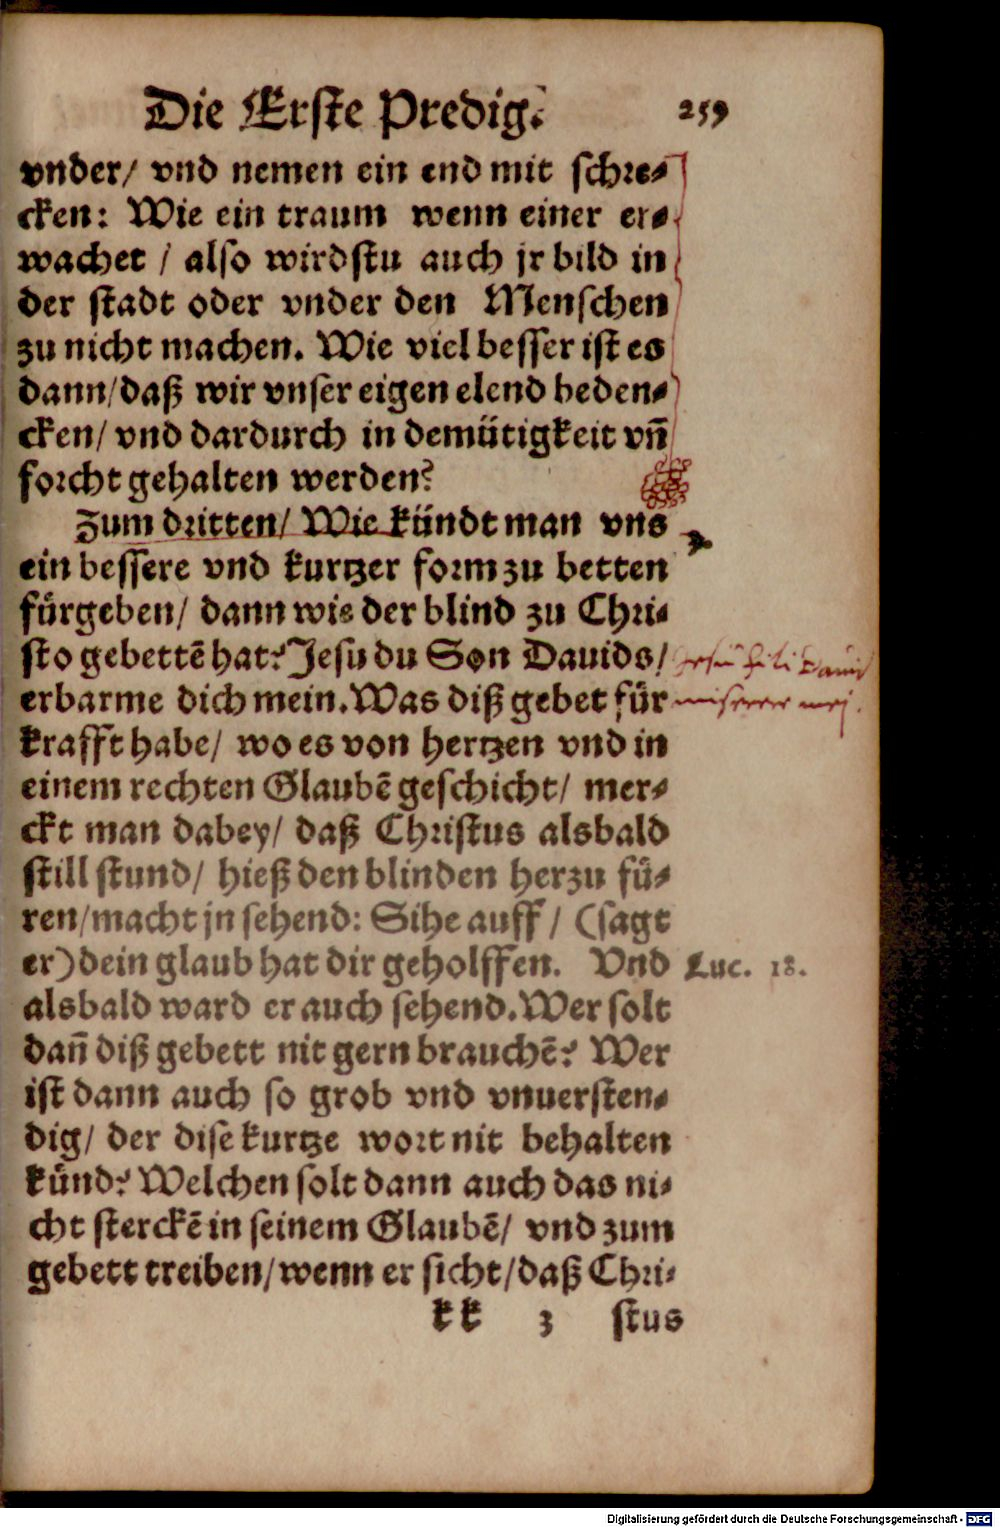 Die Erste Predig. 259
vnder/ vnd nemen ein end mit schre⸗
cken: Wie ein traum wenn einer er⸗
wachet / also wirdstu auch jr bild in
der stadt oder vnder den Menschen
zu nicht machen. Wie viel besser ist es
dann/daß wir vnser eigen elend beden⸗
cken/ vnd dardurch in demütigkeit vn̄
forcht gehalten werden?
Zum dritten/ Wie kündt man vns
ein bessere vnd kurtzer form zu betten
fürgeben/ dann wie der blind zu Chri⸗
sto gebettē hat? Jesu du Son Dauids/
Jesu fili Dauid
erbarme dich mein. Was diß gebet für
miserere mei.
krafft habe/ wo es von hertzen vnd in
einem rechten Glaubē geschicht/ mer⸗
ckt man dabey/ daß Christus alsbald
still stund/ hieß den blinden herzu fü⸗
ren/macht jn sehend: Sihe auff / (sagt
er) dein glaub hat dir geholffen. Vnd
Luc. 18.
alsbald ward er auch sehend. Wer solt
dan̄ diß gebett nit gern brauchē? Wer
ist dann auch so grob vnd vnuersten⸗
dig/ der dise kurtze wort nit behalten
künd? Welchen solt dann auch das ni⸗
cht sterckē in seinem Glaubē/ vnd zum
gebett treiben/wenn er sicht/daß Chri⸗
kk 3 stus
Digitalisierung gefördert durch die Deutsche Forschungsgemeinschaft - DFG